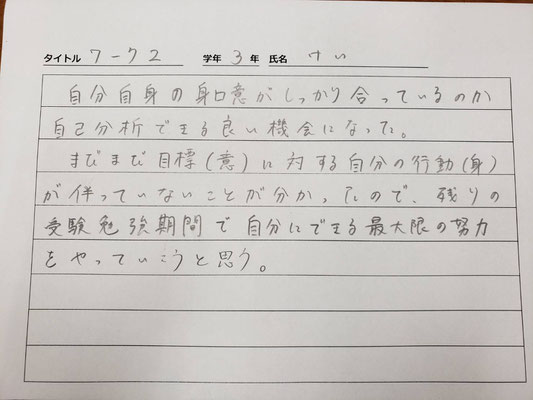 タイトル ワーク2 学年 3年 氏名 けい
自分自身の身口意がしっかり合っているのか
自己分析できる良い機会になった。
まだまだ目標(意)に対する自分の行動(身)
が伴っていないことが分かったので、残りの
受験勉強期間で自分にできる最大限の努力
をやっていこうと思う。